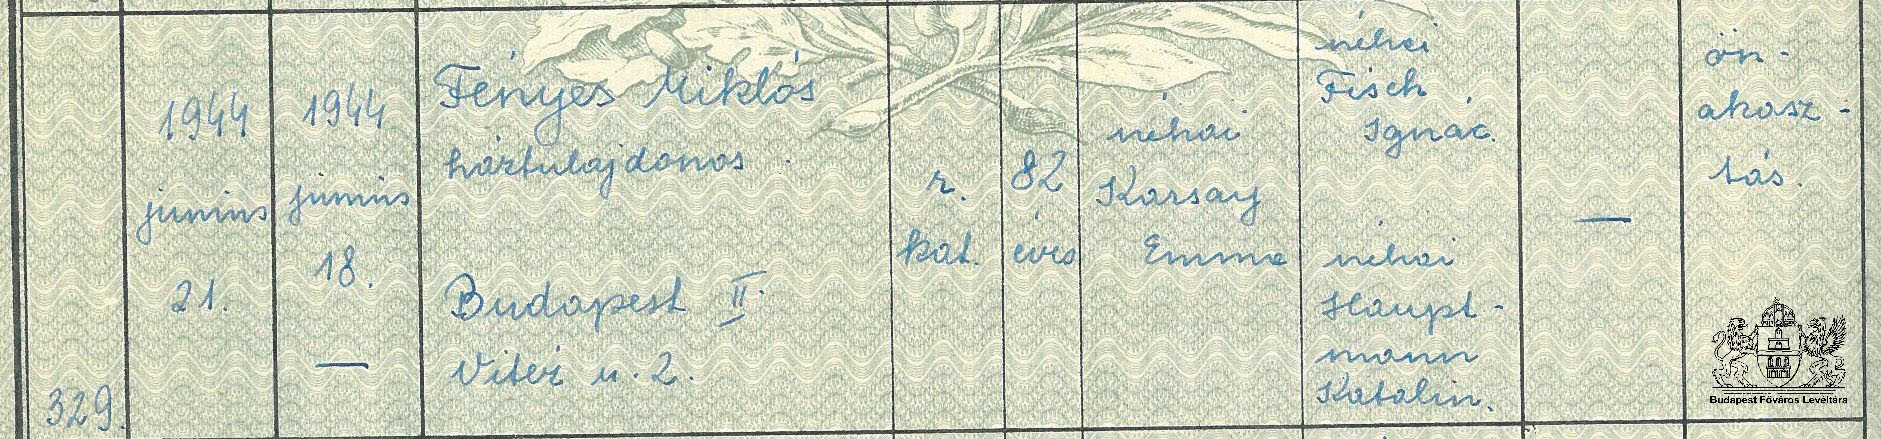 329.
1944
junius
21.
1944
junius
18.
—
Fényes Miklós
háztulajdonos.
Budapest II.
Vitéz u. 2.
r.
kat.
82
éves
néhai
Karsay
Emma
néhai
Fisch
Ignác.
néhai
Haupt-
mann
Katalin.
—
ön-
akasz-
tás.
Budapest Főváros Levéltára